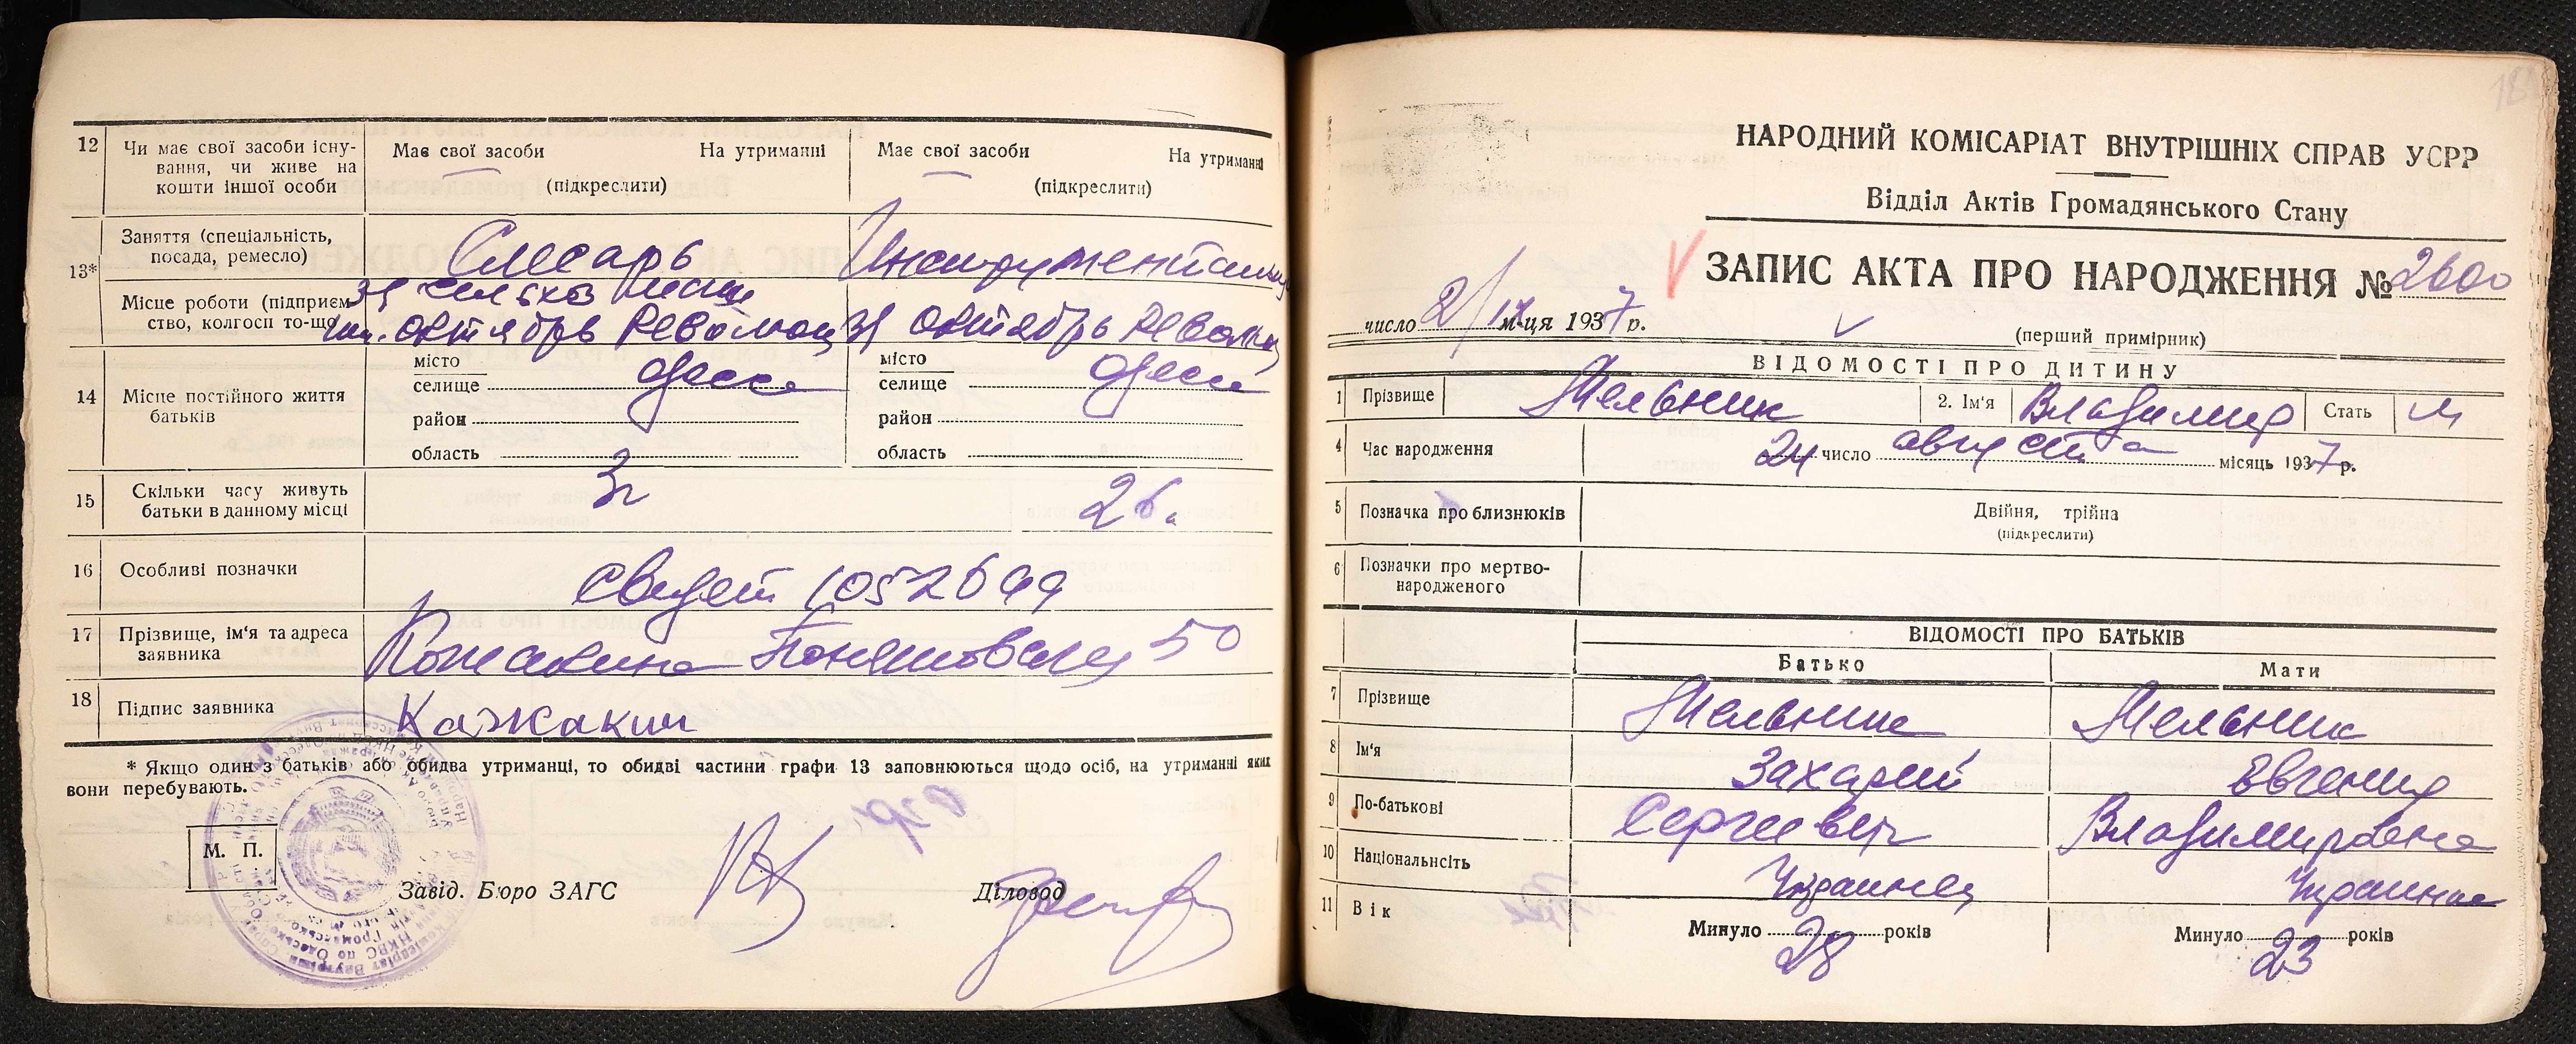 12
Чи має свої засоби існу-
вання, чи живе на
кошти іншої особи
Має свої засоби На утриманні
(підкреслити)
Має свої засоби На утриманні
(підкреслити)
13*
Заняття (спеціальність,
посада, ремесло)
Слесарь
Місце роботи (підприєм-
ство, колгосп то-що
Октябрь Революц
Зд Октябрь Револ
14
Місце постійного життя
батьків
місто
селище Одесса
район
область
місто
селище Одесса
район
область
15
Скільки часу живуть
батьки в данному місці
3г
16
Особливі позначки
Свидет
17
Прізвище, ім'я та адреса
заявника
50
18
Підпис заявника
Кажакин
* Якщо один з батьків або обидва утриманці, то обидві частини графи 13 заповнюються щодо осіб, на утриманні яких
вони перебувають.
М. П.
Завід. Бюро ЗАГС
Діловод
НАРОДНИЙ КОМІСАРІАТ ВНУТРІШНІХ СПРАВ УСРР
Відділ Актів Громадянського Стану
ЗАПИС АКТА ПРО НАРОДЖЕННЯ № 2600
число 2/ м-ця 1937 р.
(перший примірник)
ВІДОМОСТІ ПРО ДИТИНУ
1 Прізвище Мельник 2. Ім'я Владимир Стать М
4 Час народження 24 число августа місяць 1937 р.
5 Позначка про близнюків Двійня, трійна
(підкреслити)
6 Позначки про мертво-
народженого
ВІДОМОСТІ ПРО БАТЬКІВ
Батько Мати
7 Прізвище Мельник Мельник
8 Ім'я Захарий Евгения
9 По-батькові Сергиевич Владимировна
10 Національність Украинец Украинка
11 Вік Минуло 28 років Минуло 23 років